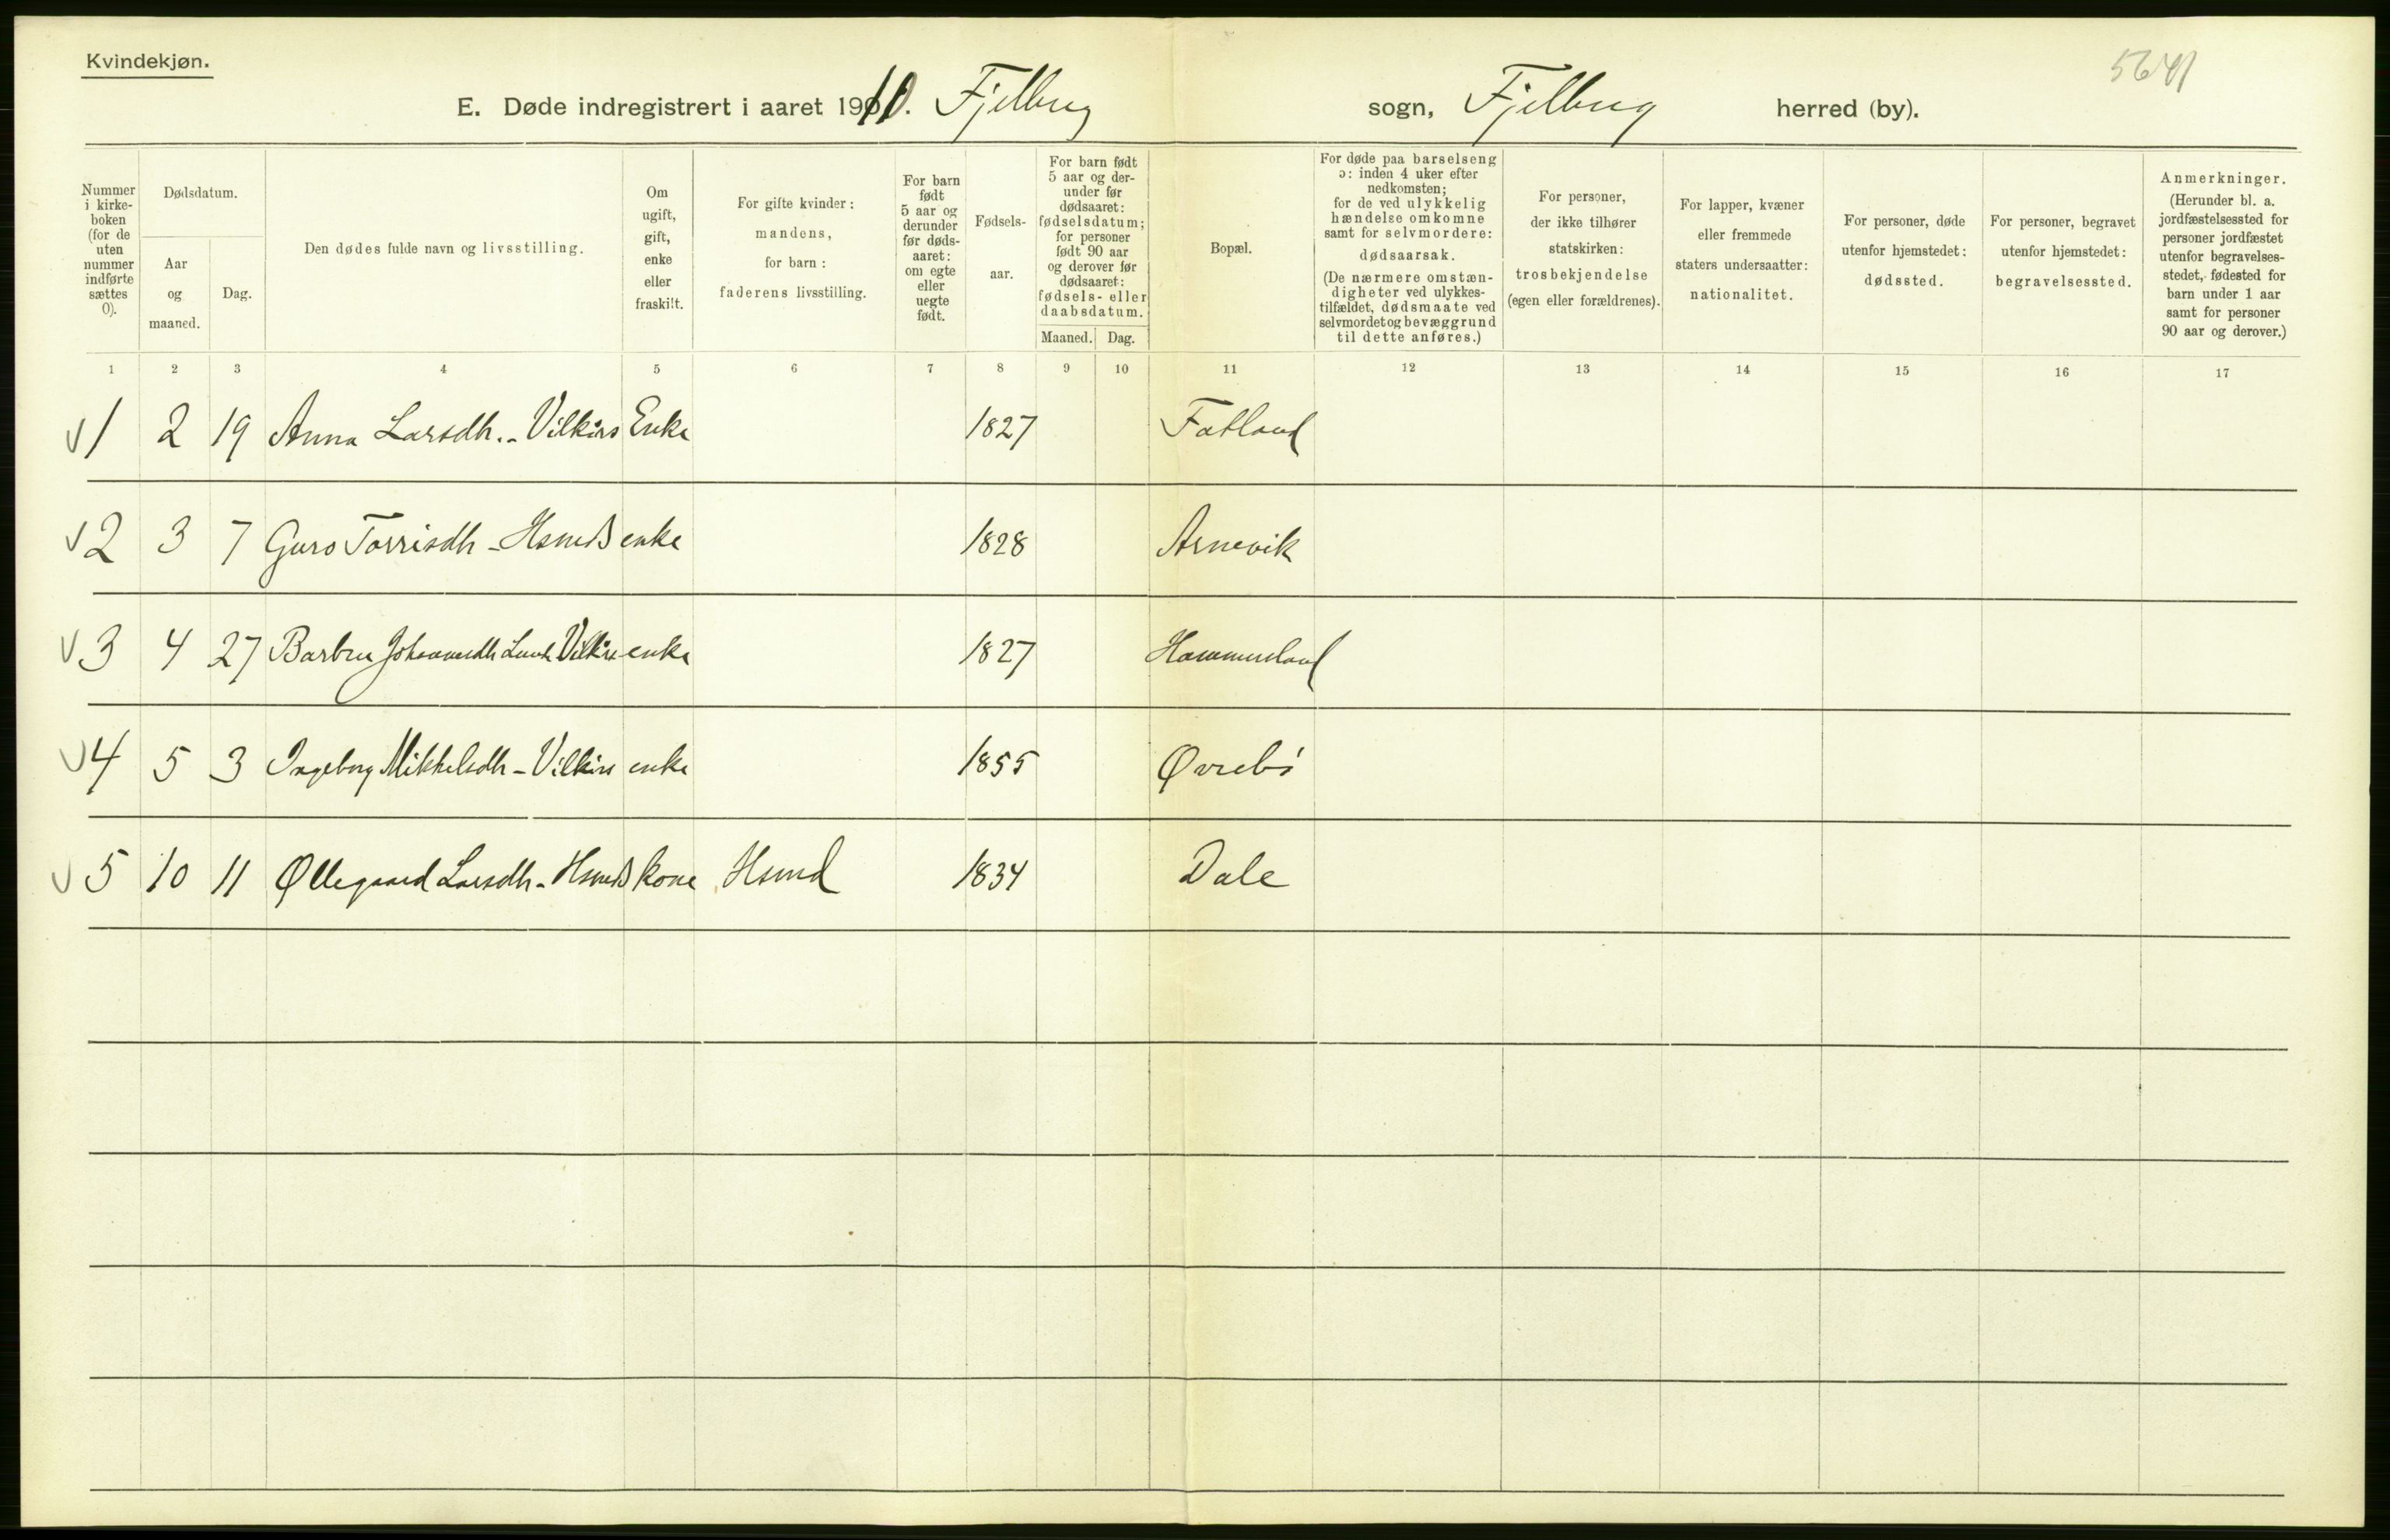 Kvindekjøn.
5641
E. Døde indregistrert i aaret 1910. Fjelberg sogn, Fjelberg herred (by).
Nummer i kirke-boken (for de uten nummer indførte sættes 0).
Dødsdatum.
Aar og maaned.
Dag.
Den dødes fulde navn og livsstilling.
Om ugift, gift, enke eller fraskilt.
For gifte kvinder: mandens, for barn: faderens livsstilling.
For barn født 5 aar og derunder før døds-aaret: om egte eller uegte født.
Fødsels-aar.
For barn født 5 aar og der-under før dødsaaret: fødselsdatum; for personer født 90 aar og derover før dødsaaret: fødsels- eller daabsdatum.
Maaned. Dag.
Bopæl.
For døde paa barselseng ɔ: inden 4 uker efter nedkomsten; for de ved ulykkelig hændelse omkomne samt for selvmordere: dødsaarsak. (De nærmere omstæn-digheter ved ulykkes-tilfældet, dødsmaate ved selvmordet og bevæggrund til dette anføres.)
For personer, der ikke tilhører statskirken: trosbekjendelse (egen eller forældrenes).
For lapper, kvæner eller fremmede staters undersaatter: nationalitet.
For personer, døde utenfor hjemstedet: dødssted.
For personer, begravet utenfor hjemstedet: begravelsessted.
Anmerkninger. (Herunder bl. a. jordfæstelsessted for personer jordfæstet utenfor begravelses-stedet, fødested for barn under 1 aar samt for personer 90 aar og derover.)
1 2 3 4 5 6 7 8 9 10 11 12 13 14 15 16 17
1 2 19 Anna Larsdh. - Vilkårs Enke 1827 Fatland
2 3 7 Guro Torrisdh - Hsmds enke 1828 Arnevik
3 4 27 Barbru Johannesdh Vilkårs enke 1827 Hammerland
4 5 3 Ingeborg Mikkelsdh - Vilkårs enke 1855 Øvrebø
5 10 11 Øllegaard Larsdh - Hsmds kone Hsmd 1834 Dale